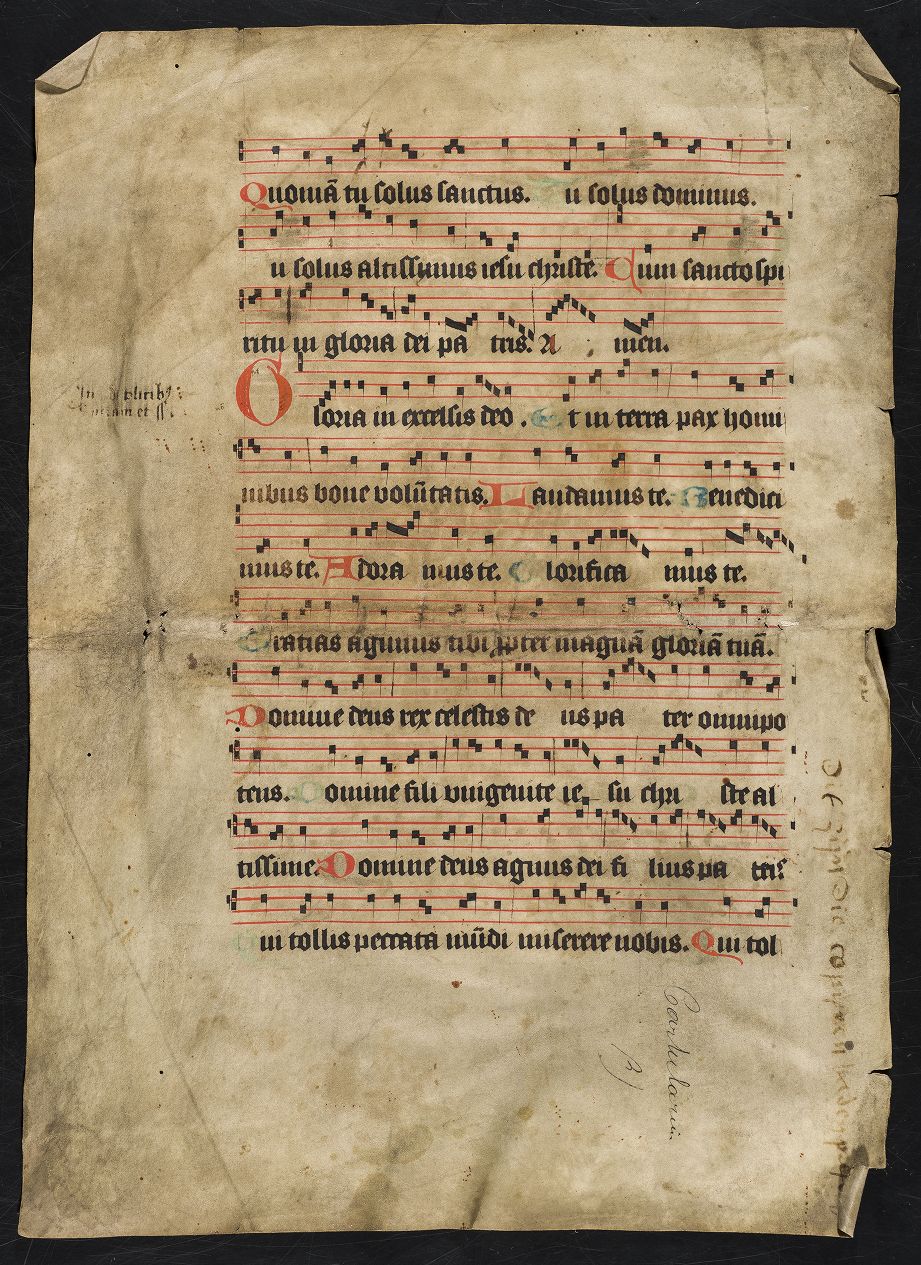 Quoniã tu solus sanctus. u solus dominus.
u solus altissimus iesu christe. Cum sancto spi
ritu in gloria dei pa tris. A men.
Gloria in excelsis deo. Et in terra pax homi
In duplicib9
nibus bone volũtatis. Laudamus te. Benedici
mus te. Adora mus te. Glorifica mus te.
Gratias agimus tibi ꝓpter magnã gloriã tuã.
Domine deus rex celestis de us pa ter omnipo
tens. Domine fili vnigenite ie su chri ste al
tissime. Domine deus agnus dei fi lius pa tris
Qui tollis peccata mũdi miserere nobis. Qui tol
Cartularium
B)
Dit zijn die copien